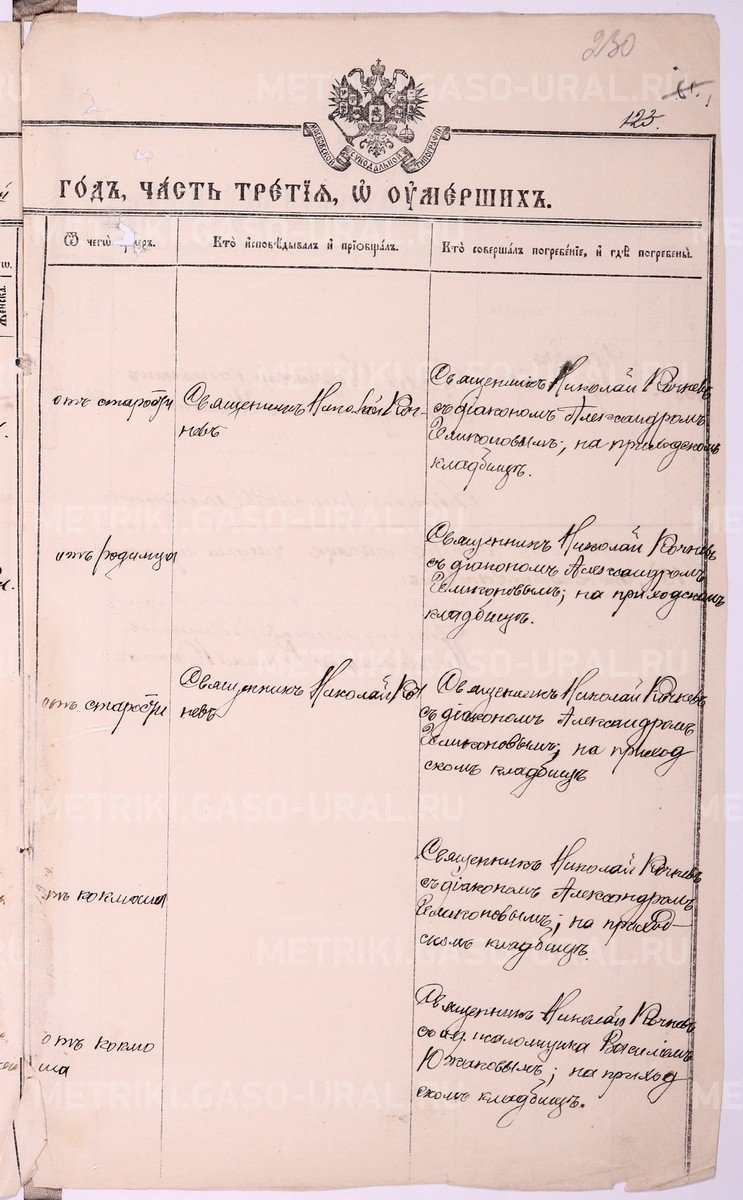 230
123.
МОСКОВСКОЙ СѴНОДАЛЬНОЙ ТИПОГРАФІИ
ГОДЪ, ЧАСТЬ ТРЕТІѦ, Ѡ ОУМЕРШИХЪ.
Женска.
Ѿ чегѡ ꙋмеръ.
Кто исповѣдывалъ и пріобщалъ.
Кто совершалъ погребеніе, и гдѣ погребены.
отъ старости
Священникъ Николай Коч-
невъ
Священникъ Николай Кочневъ
съ діакономъ Александромъ
на приходскомъ
кладбищѣ.
отъ родимца
Священникъ Николай Кочневъ
съ діакономъ Александромъ
на приходскомъ
кладбищѣ.
отъ старости
Священникъ Николай Коч
невъ
Священникъ Николай Кочневъ
съ діакономъ Александромъ
на приход
скомъ кладбищѣ
отъ кокмоша
Священникъ Николай Кочневъ
съ діакономъ Александромъ
на приход-
скомъ кладбищѣ.
отъ кокмо
ша
Священникъ Николай Кочневъ
псаломщика Василіемъ
Южаковымъ; на приход
скомъ кладбищѣ.
METRIKI.GASO-URAL.RU